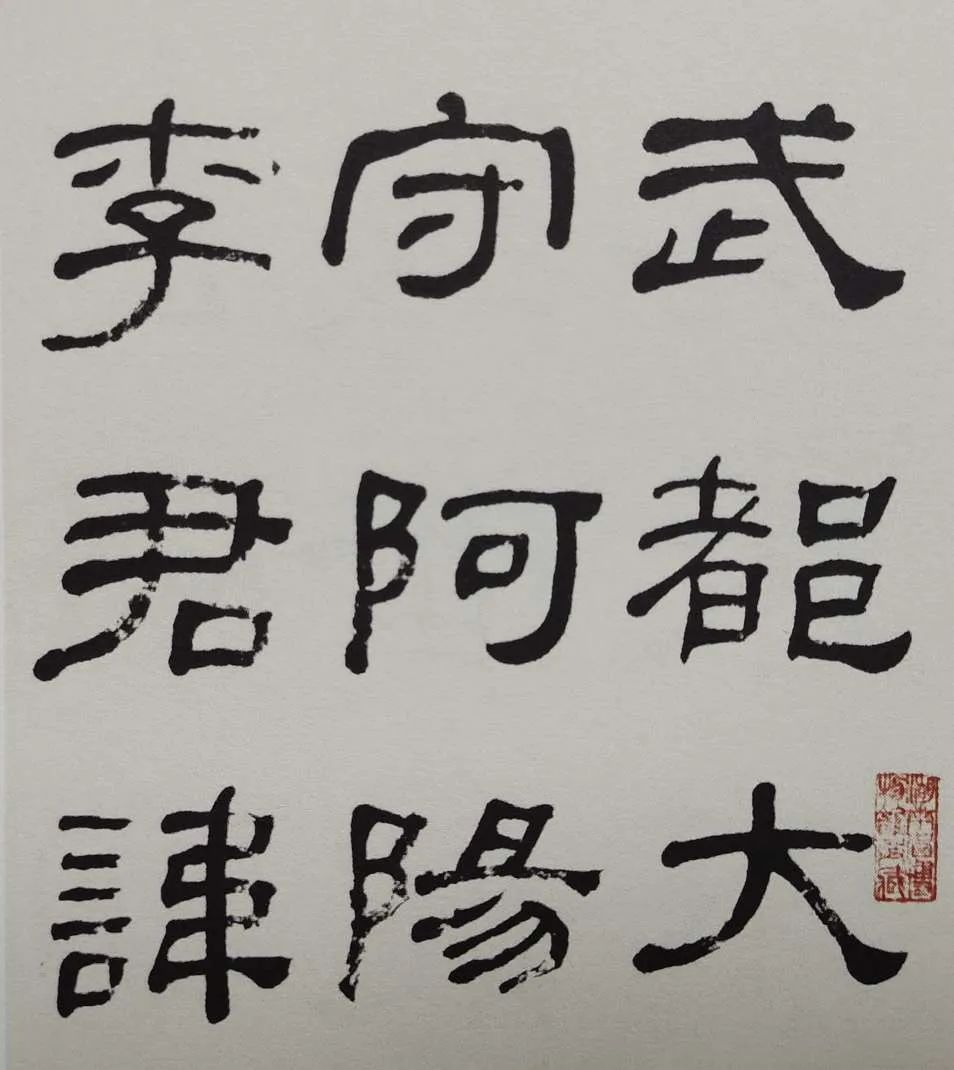 武都大
守阿陽
李君諱